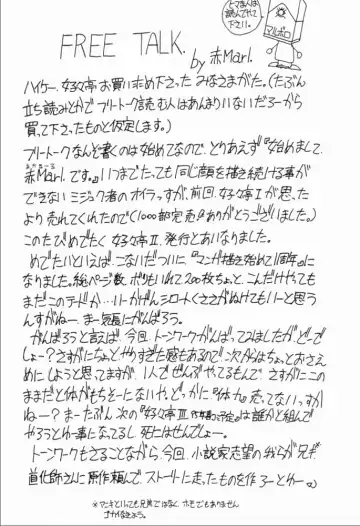 ヒマな人は
読んでやって
下さい。
マルボロ
FREE TALK.
by 赤Marl.
ハイケー、好々亭お買い求め下さった みなさまがた。(たぶん
立ち読みとかでフリートーク読む人はあんまりいないだろーから
買って下さったものと仮定します。)
フリートークなんぞ書くのは始めてなので、とりあえず『始めまして
赤Marl.です。』いつまでたっても同じ顔を描き続ける事が
できないミジュク者のオイラっすが、前回、好々亭Ⅰが思った
より売れてくれたので(1000部完売♪ありがとうございました。)
このたびめでたく 好々亭Ⅱ、発行とあいなりました。
めでたいといえば、こないだついに『マンガ描き始めて1周年』に
なりました。総ページ数、ボツもいれて200枚ちょっと、こんだけやっても
まだこのテードか…、いーかげんシロートくささがぬけてもいーと思う
んすがねー、まー気長にがんばろう。
がんばろうと言えば、今回、トーンワークがんばってみましたが、どーで
しょー?さすがにちょっとやりすぎた感もあるので次からはちょっとおさえ
めにしようと思ってますが、1人でぜんぶやってるもんで、さすがにこの
ままだと体がもちそーにないや、どっかに『体力』売ってないっすか
ねー?まーたぶん次の『好々亭Ⅲ』は誰かと組んで
やろうとゆー事になってるし、死にはせんでしょー。
トーンワークもさることながら、今回、小説家志望の我らが兄ギ
首化師さんに原作頼んで、ストーリーに走ったものを作ろーとゆー
*アニキといっても兄弟ではなく、ホモでもありません